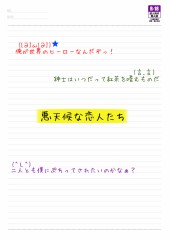 ((≧)ω(≦))★
俺が世界のヒーローなんだぞっ!
(言_言)
紳士はいつだって紅茶を嗜むものだ
悪天候な恋人たち
(^し^)
二人とも僕にぶちってされたいのかなぁ?